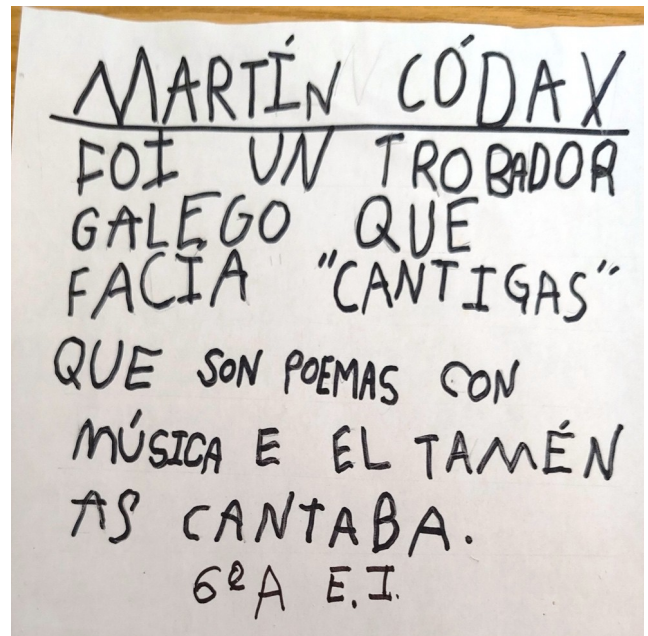 MARTÍN CÓDAX
FOI UN TROBADOR
GALEGO QUE
FACÍA "CANTIGAS"
QUE SON POEMAS CON
MÚSICA E EL TAMÉN
AS CANTABA.
6ºA E.I.